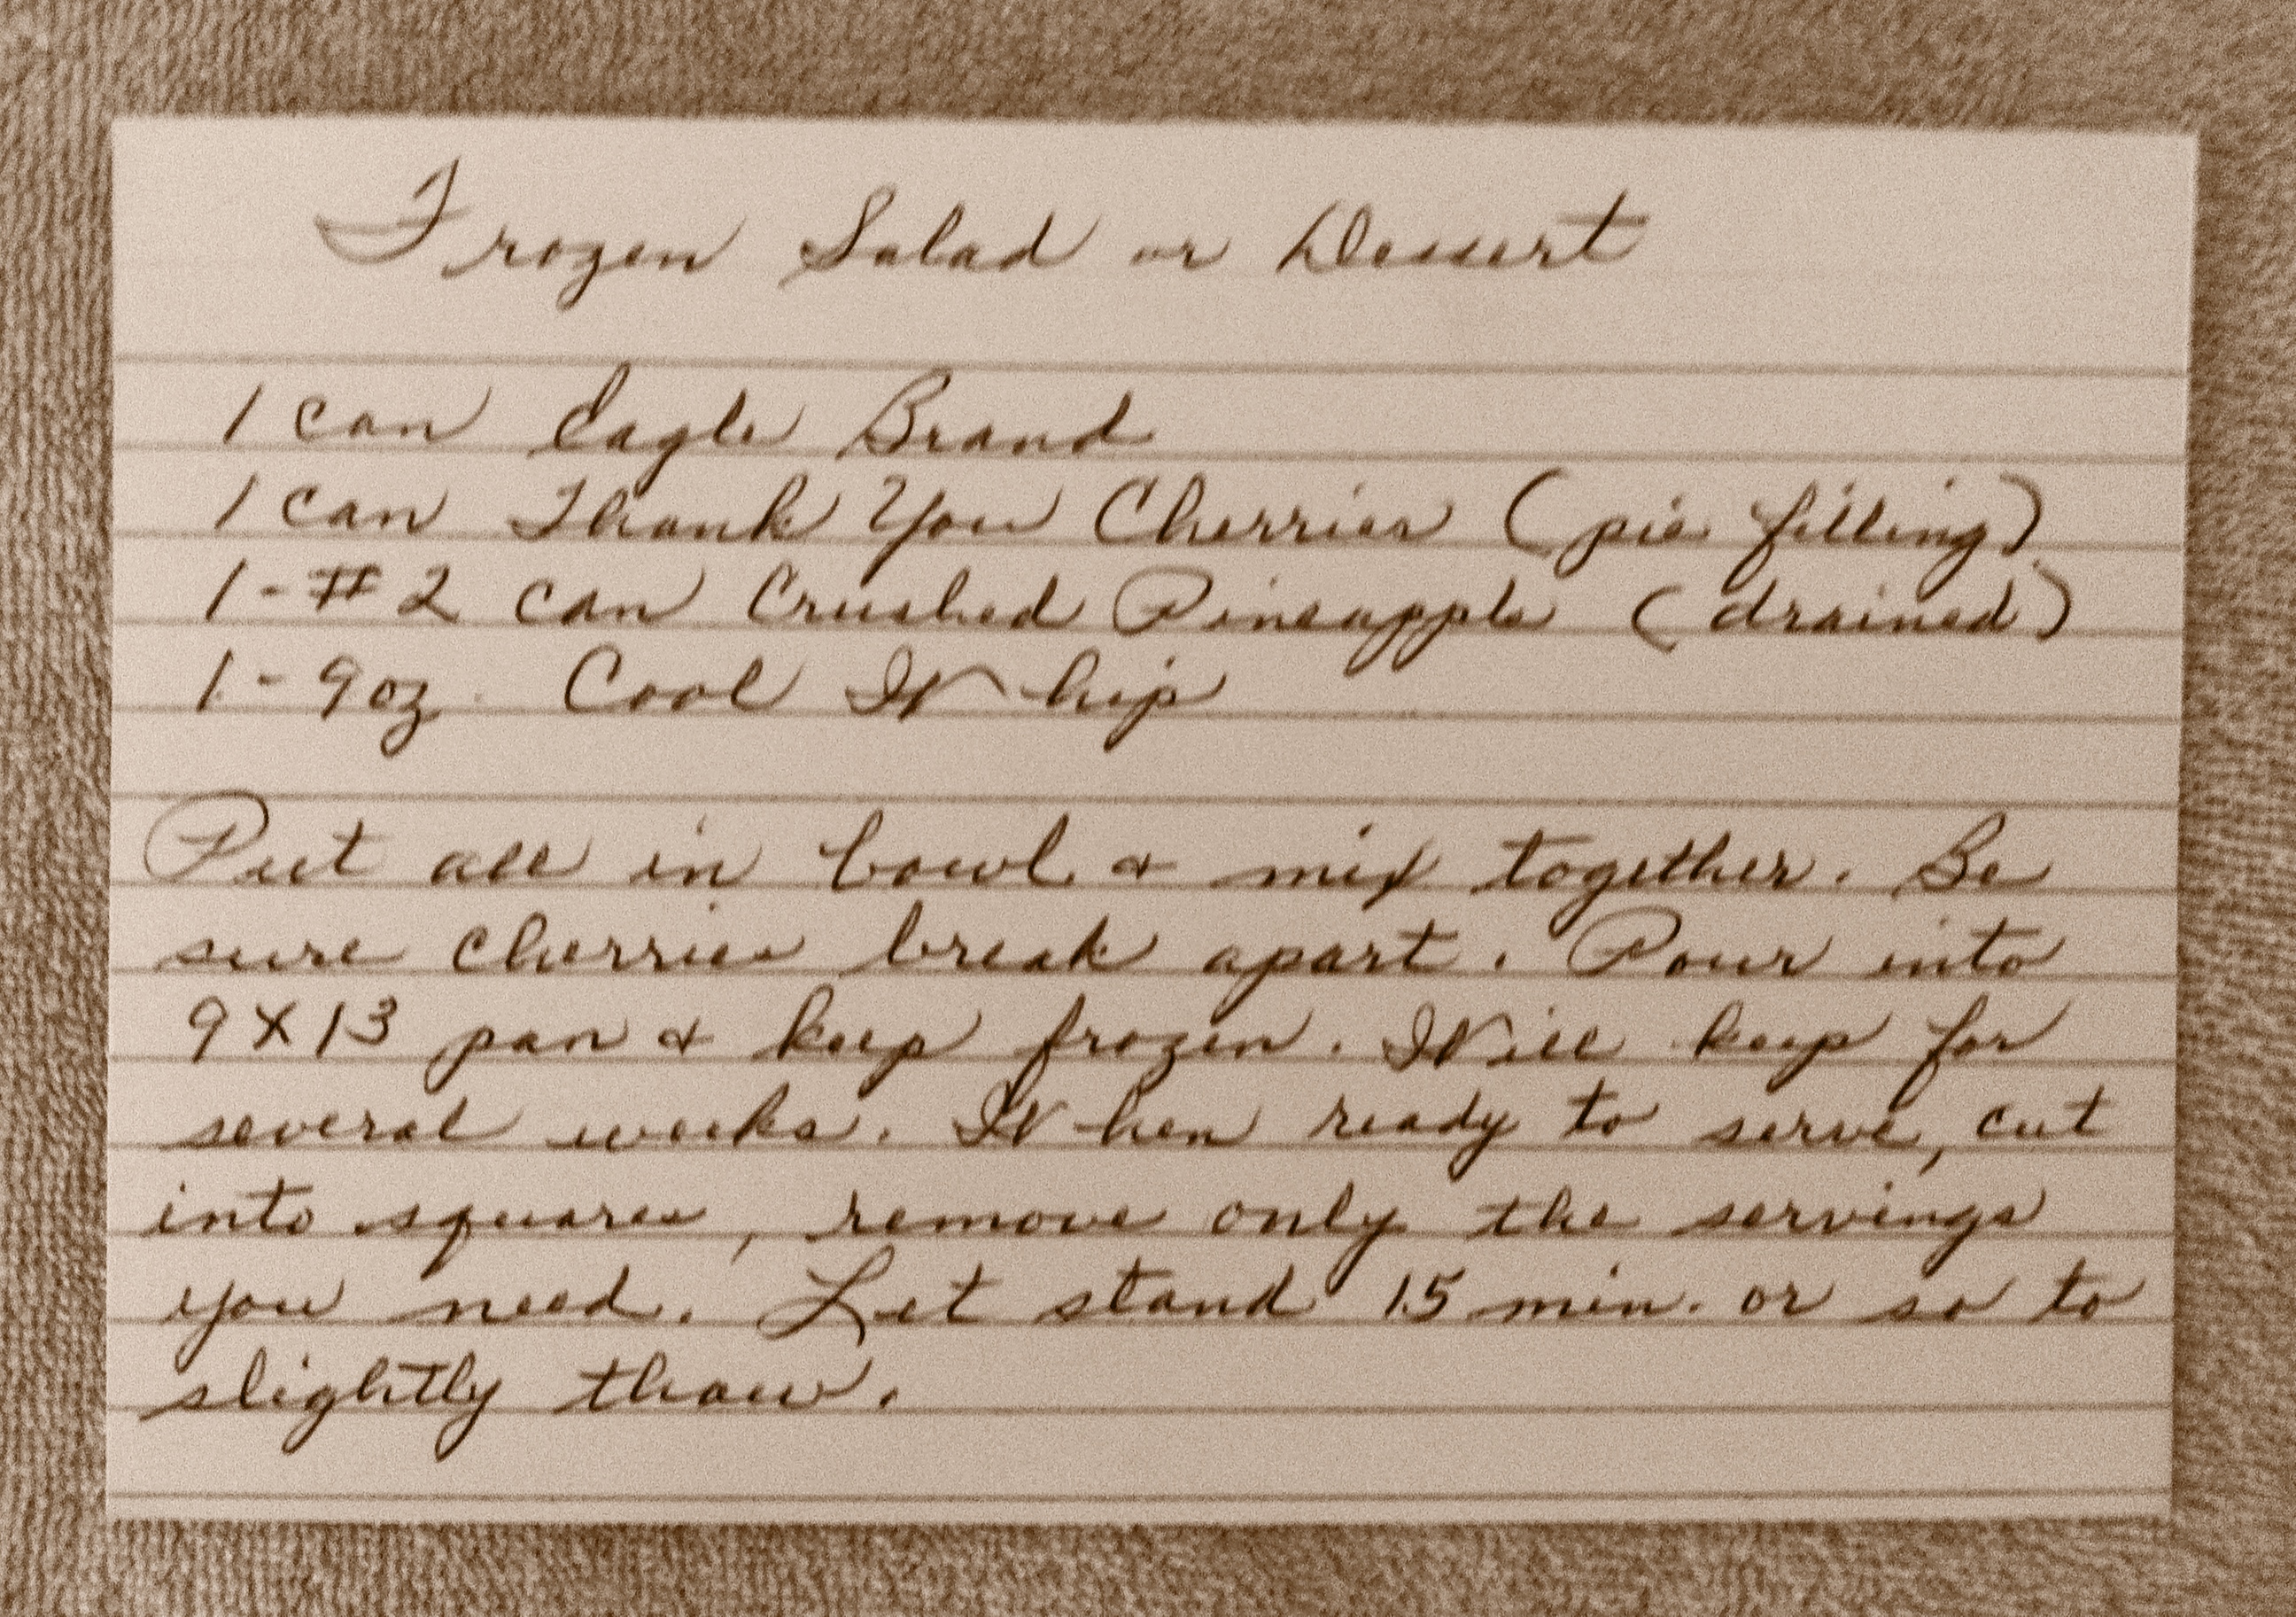 Frozen Salad or Dessert
1 can Eagle Brand
1 can Thank You Cherries (pie filling)
1 - #2 can Crushed Pineapple (drained)
1 - 9 oz. Cool Whip
Put all in bowl & mix together. Be
sure cherries break apart. Pour into
9X13 pan & keep frozen. Will keep for
several weeks. When ready to serve, cut
into squares, remove only the servings
you need. Let stand 15 min. or so to
slightly thaw.